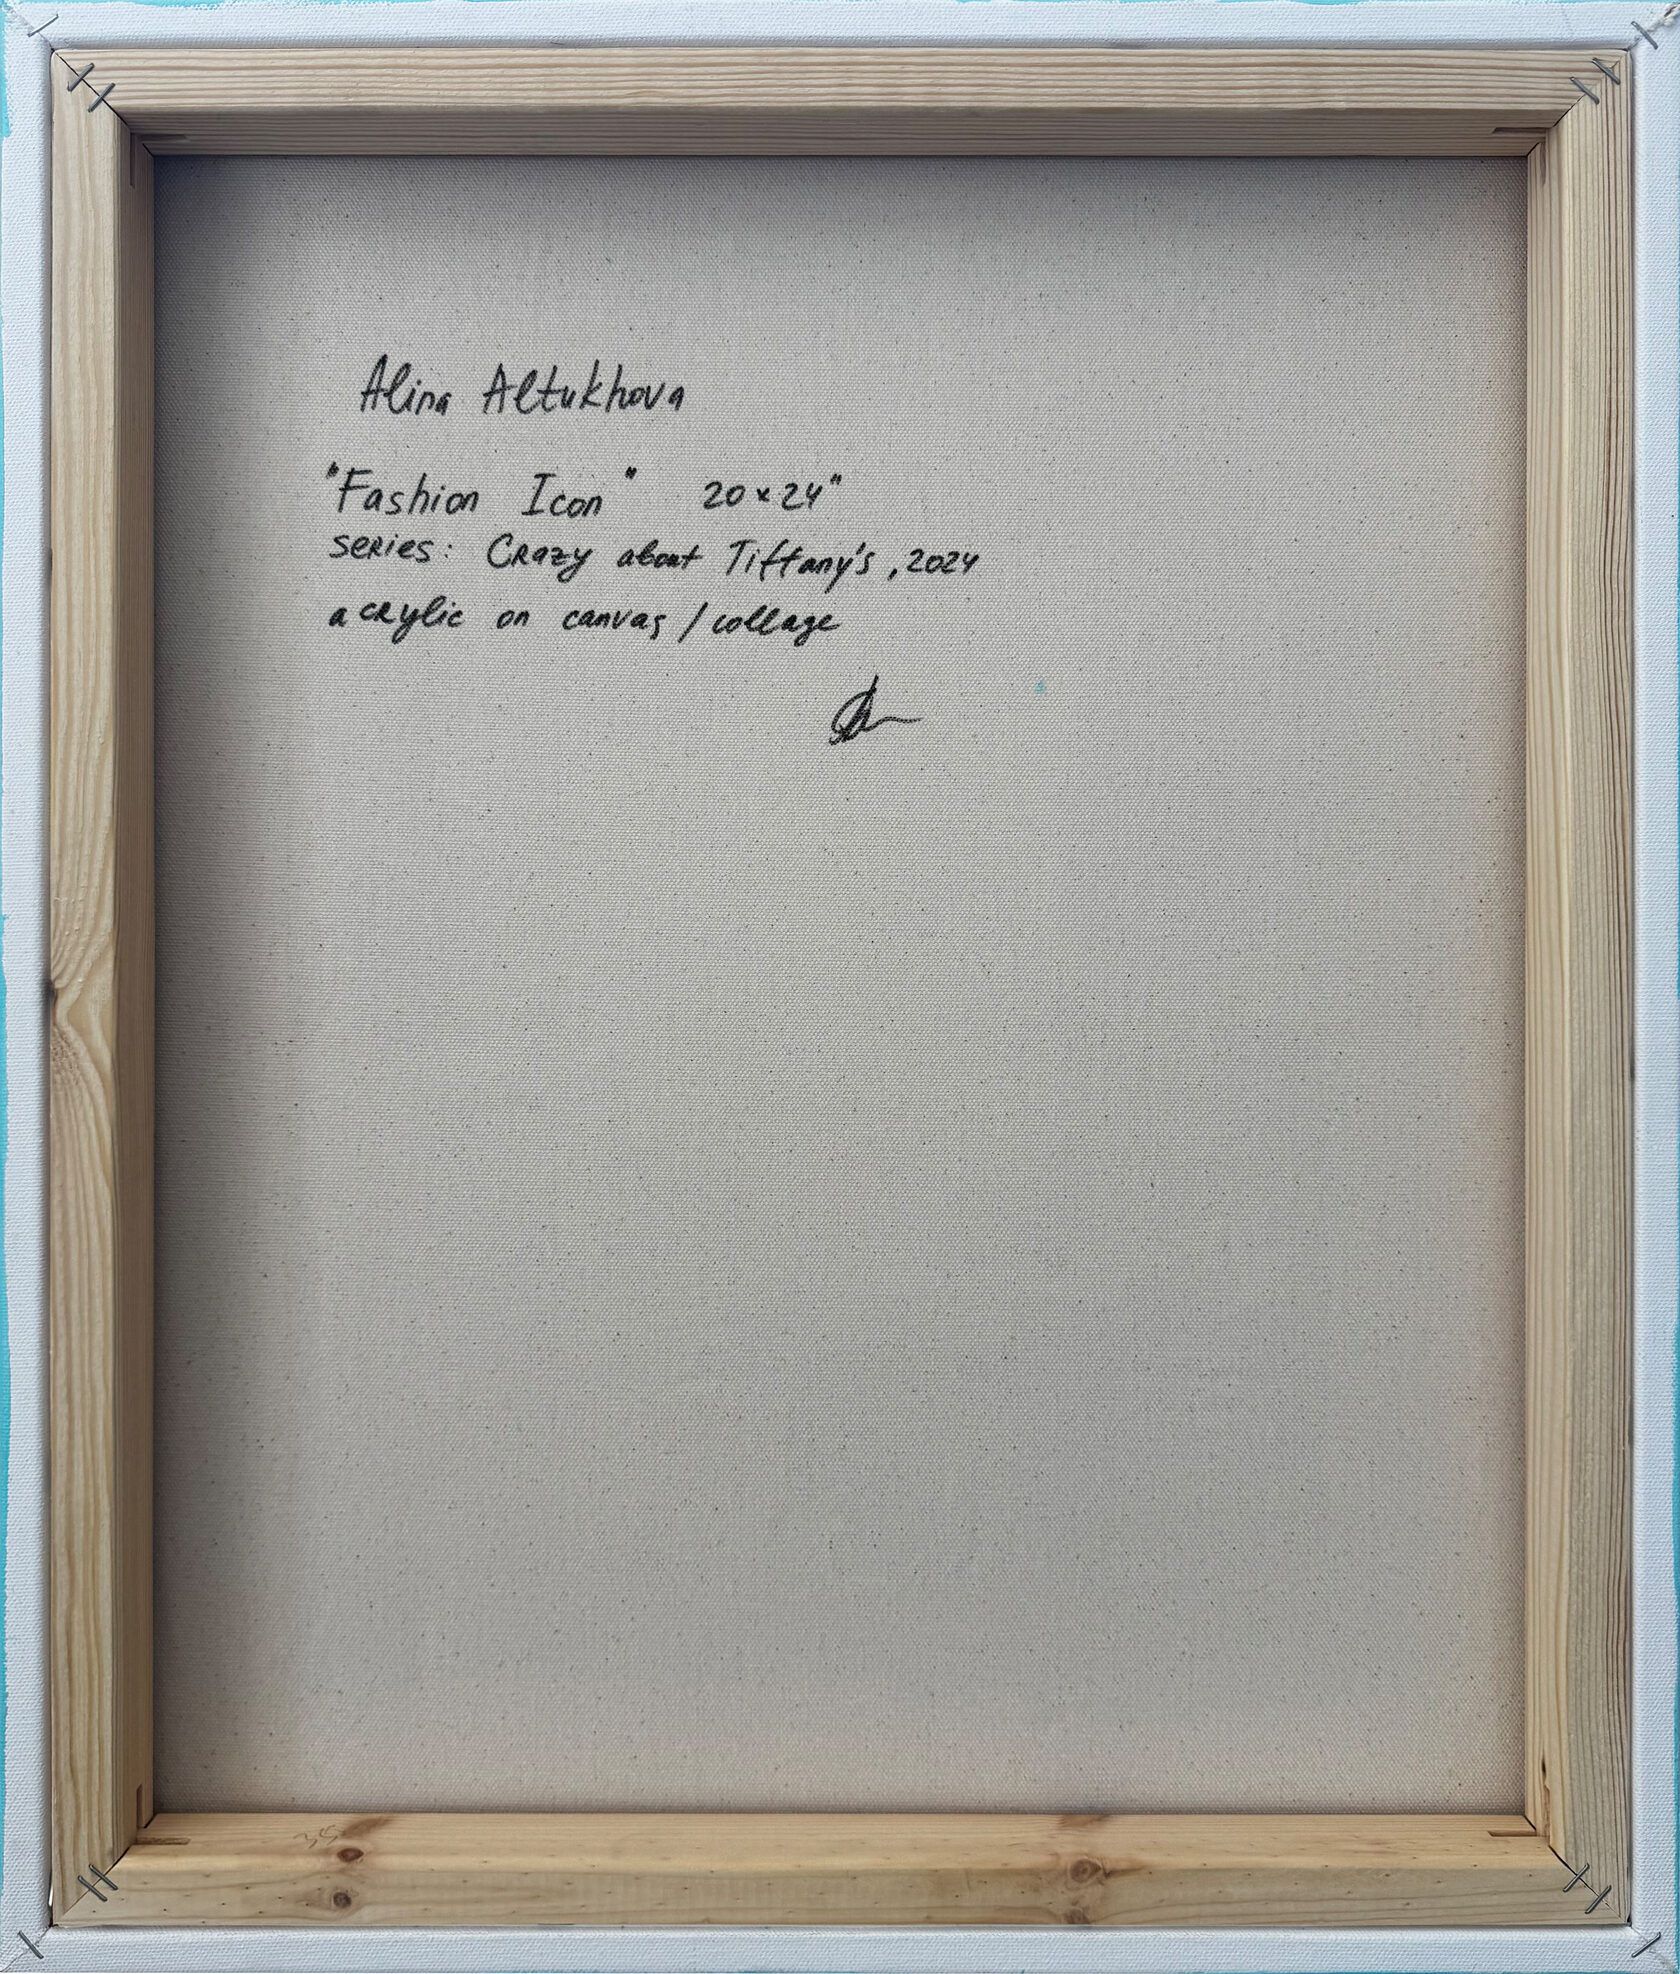 Alina Altukhova
"Fashion Icon" 20×24"
series: Crazy about Tiffany's, 2024
acrylic on canvas/collage